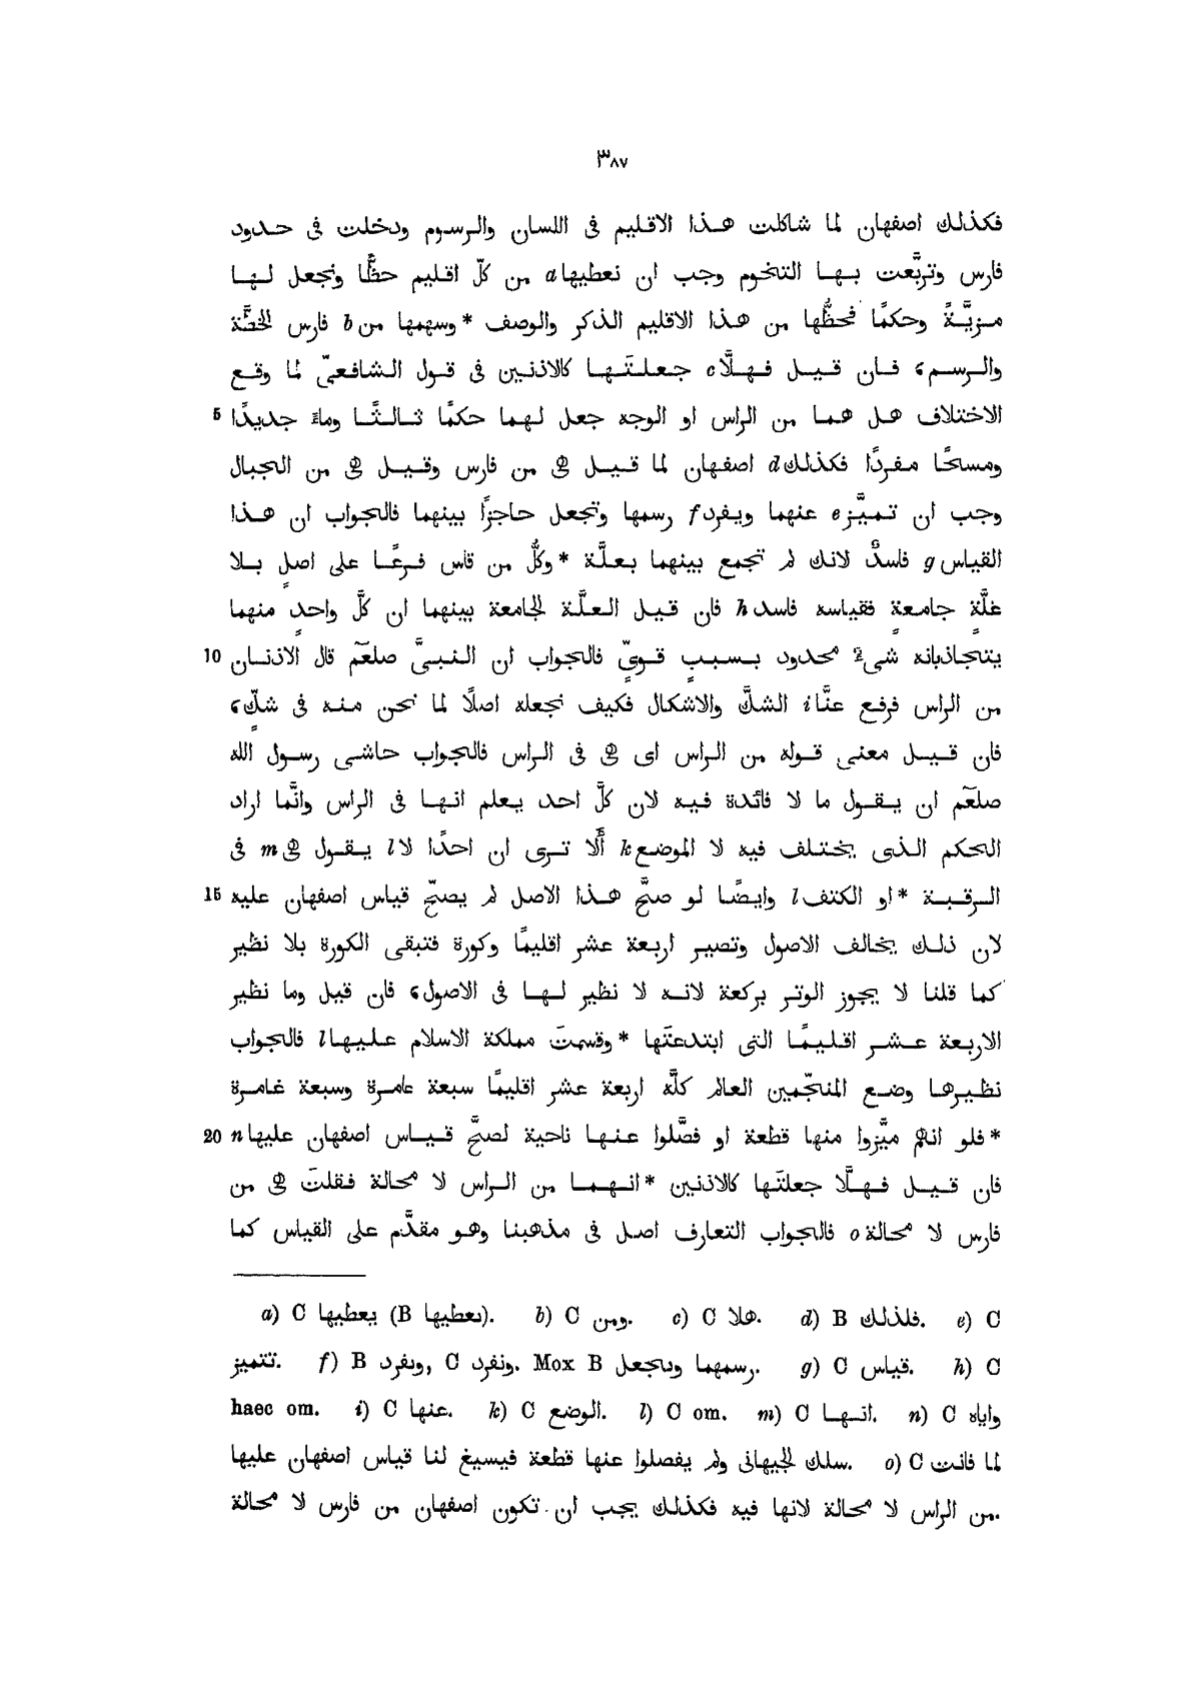 ٣٨٧
فكذلك اصفهان لما شاكلت هذا الاقليم فى اللسان والرسوم ودخلت فى حدود
فارس وتربّعت بها التخوم وجب ان نعطيها a من كلّ اقليم حظًّا ونجعل لها
مزيّةً وحكمًا فحظُّها من هذا الاقليم الذكر والوصف * وسهمها من b فارس الخطّة
والرسم، فان قيل فهلّا c جعلتَها كالاذنين فى قول الشافعىّ لما وقع
الاختلاف هل هما من الراس او الوجه جعل لهما حكمًا ثالثًا وماءً جديدًا 5
ومسحًا مفردًا فكذلك d اصفهان لما قيل هى من فارس وقيل هى من الجبال
وجب ان تميّز e عنهما ويفرد f رسمها وتجعل حاجزًا بينهما فالجواب ان هذا
القياس g فاسدٌ لانك لم تجمع بينهما بعلّة * وكلُّ من قاس فرعًا على اصلٍ بلا
علّةٍ جامعةٍ فقياسه فاسد h فان قيل العلّة الجامعة بينهما ان كلَّ واحدٍ منهما
يتجاذبانه شىء محدود بسببٍ قوىٍّ فالجواب ان النبىَّ صلعم قال الاذنان 10
من الراس فرفع عنّا i الشكَّ والاشكال فكيف نجعله اصلًا لما نحن منه فى شكٍّ،
فان قيل معنى قوله من الراس اى هى فى الراس فالجواب حاشى رسول الله
صلعم ان يقول ما لا فائدة فيه لان كلَّ احد يعلم انها فى الراس وانّما اراد
الحكم الذى يختلف فيه لا الموضع k أَلا ترى ان احدًا لا l يقول هى m فى
الرقبة * او الكتف l وايضًا لو صحّ هذا الاصل لم يصحّ قياس اصفهان عليه 15
لان ذلك يخالف الاصول وتصير اربعة عشر اقليمًا وكورة فتبقى الكورة بلا نظير
كما قلنا لا يجوز الوتر بركعة لانه لا نظير لها فى الاصول، فان قيل وما نظير
الاربعة عشر اقليمًا التى ابتدعتَها * وقسمتَ مملكة الاسلام عليها l فالجواب
نظيرها وضع المنجّمين العالم كلّه اربعة عشر اقليمًا سبعة عامرة وسبعة غامرة
* فلو انهم ميّزوا منها قطعة او فصّلوا عنها ناحية لصحّ قياس اصفهان عليها n 20
فان قيل فهلّا جعلتَها كالاذنين * انهما من الراس لا محالة فقلتَ هى من
فارس لا محالة o فالجواب التعارف اصل فى مذهبنا وهو مقدّم على القياس كما
a) C يعطيها (B ىعطيها). b) C ومن. c) C هلا. d) B فلذلك. e) C
تتميز. f) B وىفرد, C ونفرد. Mox B رسمهما وىىجعل. g) C قياس. h) C
haec om. i) C عنها. k) C الوضع. l) C om. m) C انها. n) C واياه
سلك الجيهانى ولم يفصلوا عنها قطعة فيسيغ لنا قياس اصفهان عليها. o) C لما قانت
من الراس لا محالة لانها فيه فكذلك يجب ان تكون اصفهان من فارس لا محالة.